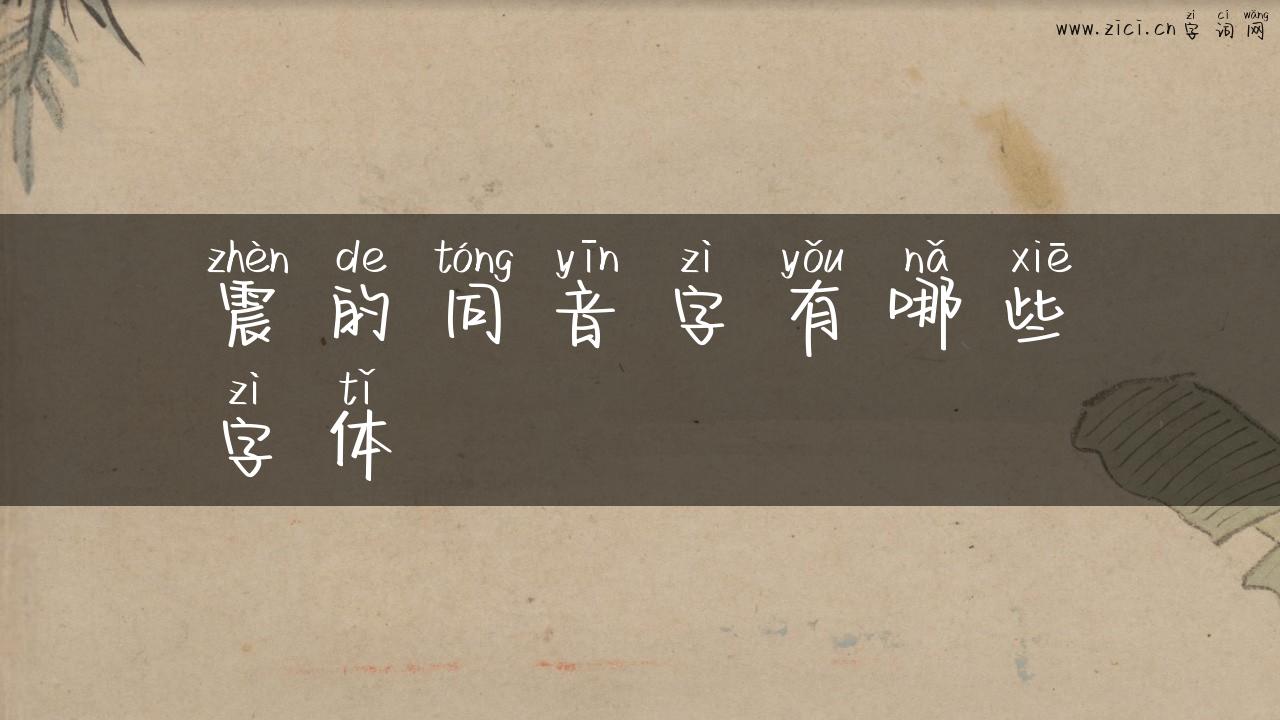 zì cí wǎng
www.zici.cn 字 词 网
zhèn de tóng yīn zì yǒu nǎ xiē
震 的 同 音 字 有 哪 些
zì tǐ
字 体